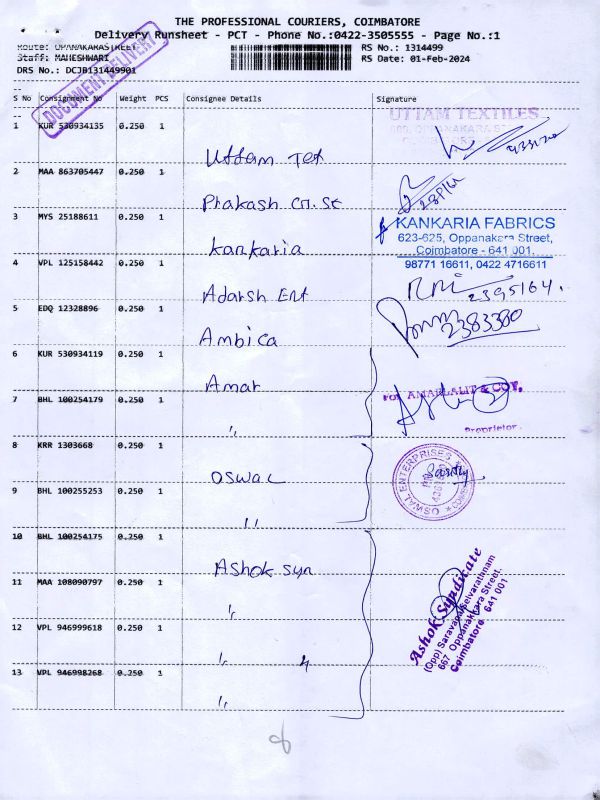 THE PROFESSIONAL COURIERS, COIMBATORE
Delivery Runsheet - PCT - Phone No.:0422-3505555 - Page No.:1
Route: OPANAKARASTREET
Staff: MAHESHWARI
DRS No.: DCJB131449901
RS No.: 1314499
RS Date: 01-Feb-2024
DOCUMENT DELIVERY
S No Consignment No Weight PCS Consignee Details Signature
1 KUR 530934135 0.250 1
Uttam Tex
UTTAM TEXTILES
2 MAA 863705447 0.250 1
Prakash
3 MYS 25188611 0.250 1
Kankaria
KANKARIA FABRICS
623-625, Oppanakara Street,
Coimbatore - 641 001.
98771 16611, 0422 4716611
4 VPL 125158442 0.250 1
Adarsh Ent
2395164.
5 EDQ 12328896 0.250 1
Ambica
2383380
6 KUR 530934119 0.250 1
Amar
7 BHL 100254179 0.250 1
"
For AMARLALIT & COY.
Proprietor.
8 KRR 1303668 0.250 1
OSWAL
OSWAL ENTERPRISES
9 BHL 100255253 0.250 1
"
10 BHL 100254175 0.250 1
Ashok Syn
11 MAA 108090797 0.250 1
"
12 VPL 946999618 0.250 1
" 4
13 VPL 946998268 0.250 1
"
Ashok Syndicate
(Opp) Saravana Selvarathnam
667 Oppanakkara Street.
Coimbatore - 641 001